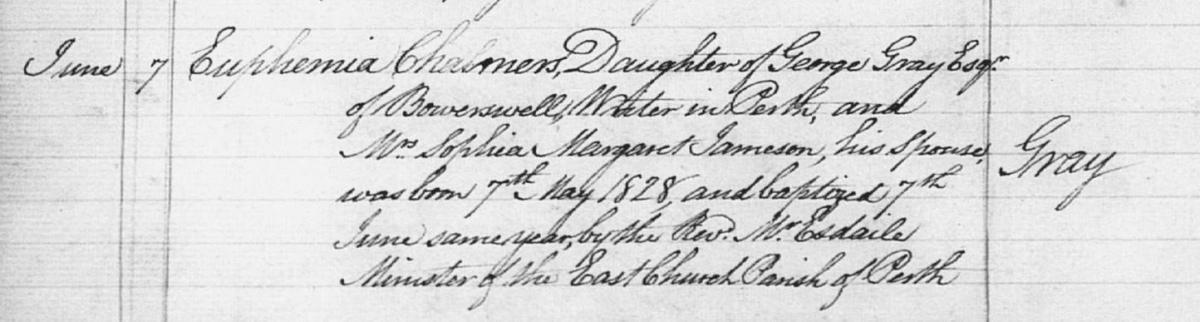 June 7 Euphemia Chalmers, Daughter of George Gray Esqr.
of Bowerswell, Writer in Perth, and
Mrs Sophia Margaret Jameson, his Spouse,
Gray
was born 7th May 1828, and baptized 7th
June same year, by the Revd. Mr. Esdaile
Minister of the East Church Parish of Perth